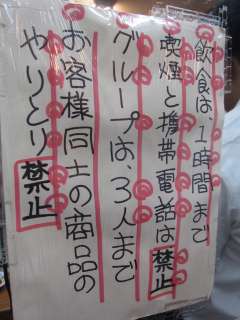 飲食は、1時間まで
喫煙と携帯電話は禁止
グループは、3人まで
お客様同士の商品の
やりとり禁止